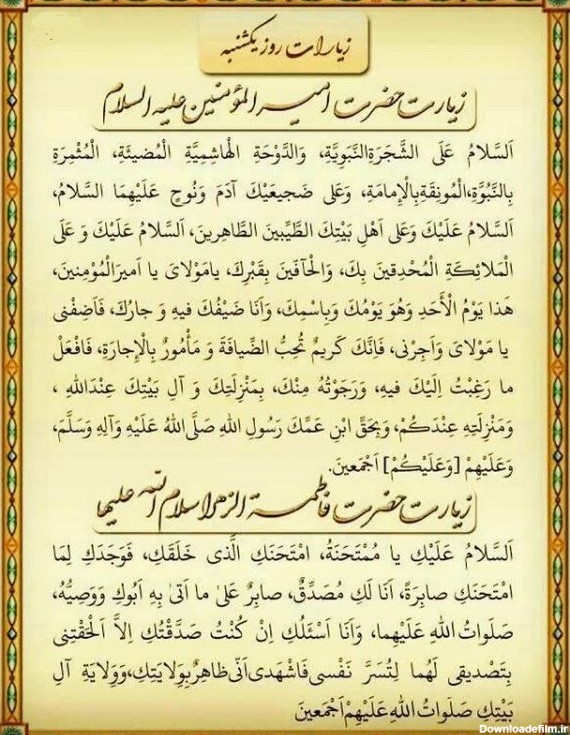 زیارات روز یکشنبه
زیارت حضرت امیرالمؤمنین علیه السلام
اَلسَّلامُ عَلَی الشَّجَرَةِالنَّبَوِیَّةِ، وَالدَّوْحَةِ الْهاشِمِیَّةِ الْمُضیئَةِ، الْمُثْمِرَةِ
بِالنَّبُوَّةِ،الْمُونِقَةِبِالْاِمامَةِ، وَعَلی ضَجیعَیْكَ آدَمَ وَنُوحٍ عَلَیْهِمَا السَّلامُ،
اَلسَّلامُ عَلَیْكَ وَعَلی اَهْلِ بَیْتِكَ الطَّیِّبینَ الطَّاهِرینَ، اَلسَّلامُ عَلَیْكَ وَ عَلَی
الْمَلائِكَةِ الْمُحْدِقینَ بِكَ، وَالْحآفّینَ بِقَبْرِكَ، یامَوْلایَ یا اَمیرَالْمُوْمِنینَ،
هَذا یَوْمُ الْأَحَدِ وَهُوَ یَوْمُكَ وَبِاسْمِكَ، وَاَنَا ضَیْفُكَ فیهِ وَ جارُكَ، فَاَضِفْنی
یا مَوْلایَ وَاَجِرْنی، فَاِنَّكَ كَریمٌ تُحِبُّ الضِّیافَةَ وَ مَأْمُورٌ بِالْإِجارَةِ، فَافْعَلْ
ما رَغِبْتُ اِلَیْكَ فیهِ، وَرَجَوْتُهُ مِنْكَ، بِمَنْزِلَتِكَ وَ آلِ بَیْتِكَ عِنْدَاللهِ ،
وَمَنْزِلَتِهِ عِنْدَكُمْ، وَبِحَقِّ ابْنِ عَمِّكَ رَسُولِ اللهِ صَلَّی اللهُ عَلَیْهِ وَآلِهِ وَسَلَّمَ،
وَعَلَیْهِمْ [وَعَلَیْكُمْ] اَجْمَعینَ.
زیارت حضرت فاطمة الزهرا سلام الله علیها
اَلسَّلامُ عَلَیْكِ یا مُمْتَحَنَةُ، امْتَحَنَكِ الَّذی خَلَقَكِ، فَوَجَدَكِ لِمَا
امْتَحَنَكِ صابِرَةً، اَنَا لَكِ مُصَدِّقٌ، صابِرٌ عَلیٰ ما اَتیٰ بِهِ اَبُوكِ وَوَصِیُّهُ،
صَلَواتُ اللهِ عَلَیْهِما، وَاَنَا اَسْئَلُكِ اِنْ كُنْتُ صَدَّقْتُكِ اِلاَّ اَلْحَقْتِنی
بِتَصْدیقی لَهُما لِتُسَرَّ نَفْسی فَاشْهَدی اَنّی ظاهِرٌبِوِلایَتِكِ،وَوِلایَةِ آلِ
بَیْتِكِ صَلَواتُ اللهِ عَلَیْهِمْ اَجْمَعینَ
Downloadefilm.ir